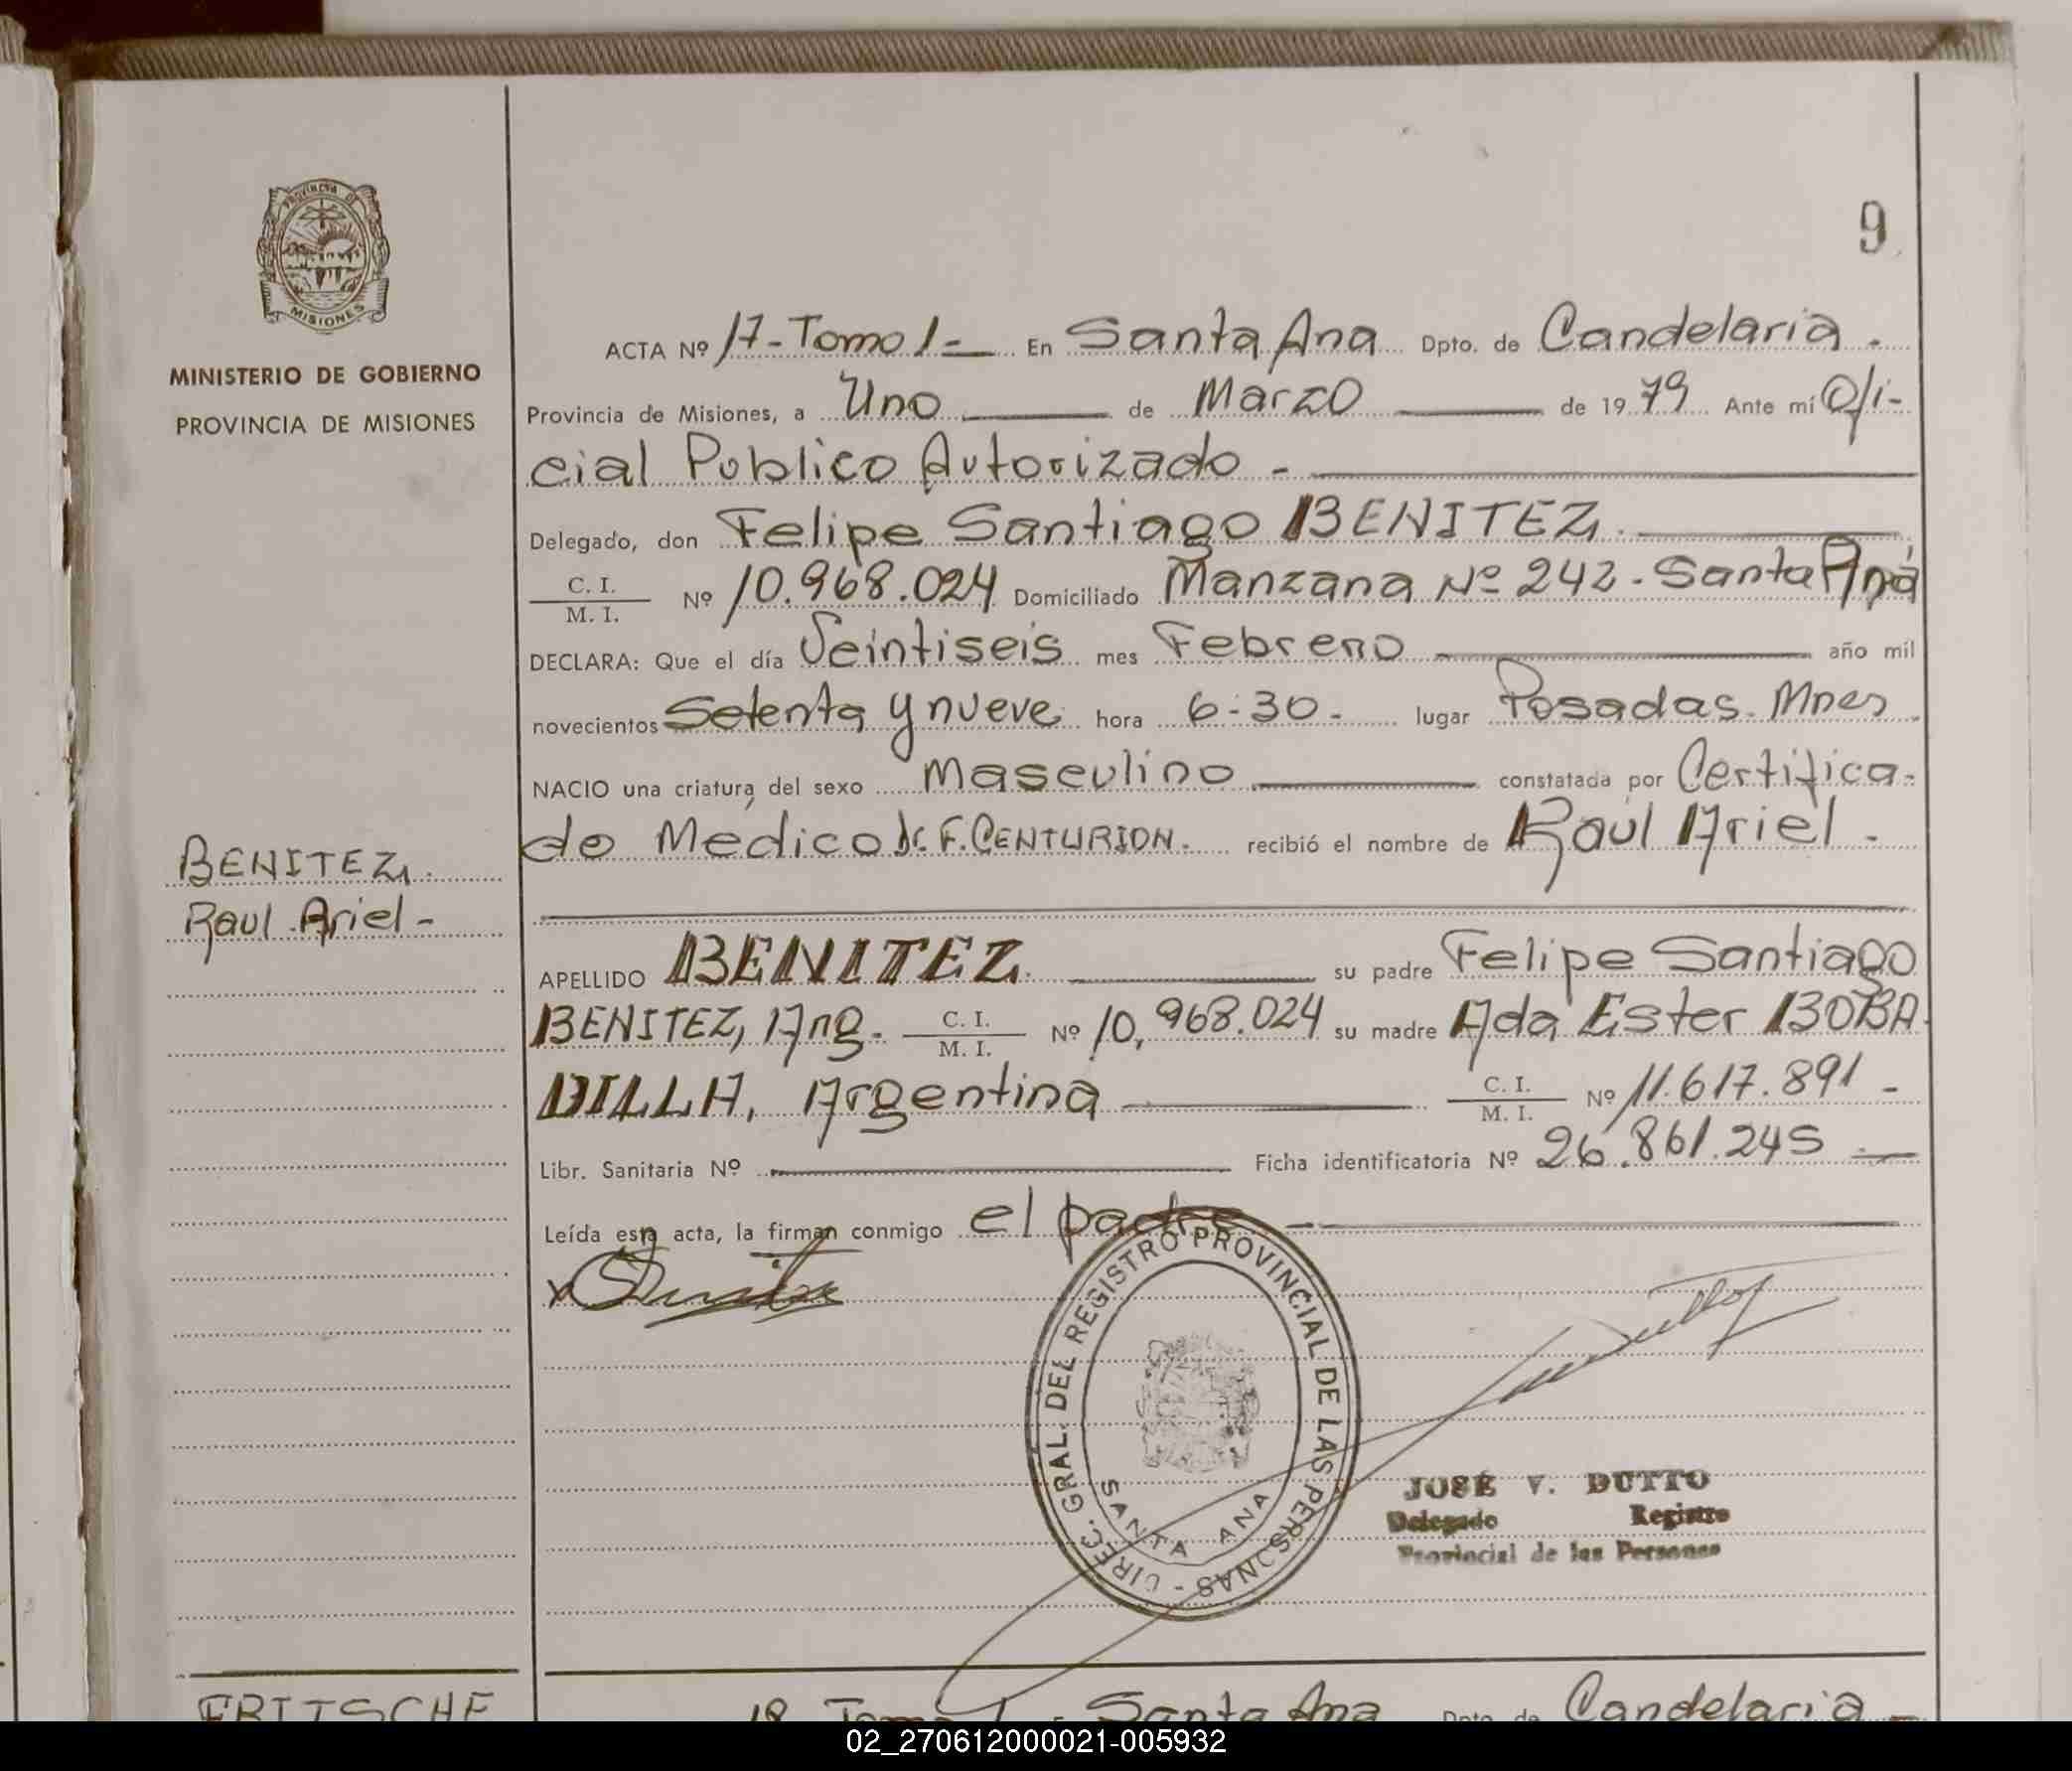 9
PROVINCIA DE
MISIONES
MINISTERIO DE GOBIERNO
PROVINCIA DE MISIONES
BENITEZ.
Raul Ariel -
ACTA Nº 17 - Tomo 1 - En Santa Ana Dpto. de Candelaria .
Provincia de Misiones, a Uno de Marzo de 1979 Ante mí Ofi-
cial Publico Autorizado -
Delegado, don Felipe Santiago BENITEZ.
C. I.
M. I. Nº 10.968.024 Domiciliado Manzana Nº 242 - Santa Ana
DECLARA: Que el día Veintiseis mes Febrero año mil
novecientos Setenta y nueve hora 6-30- lugar Posadas. Mnes
NACIO una criatura del sexo Masculino constatada por Certifica-
do Medico Dr. F. CENTURION. recibió el nombre de Raúl Ariel -
APELLIDO BENITEZ. su padre Felipe Santiago
BENITEZ, Arg. C. I.
M. I. Nº 10.968.024 su madre Ada Ester BOBA
DILLA, Argentina C. I.
M. I. Nº 11.617.891 -
Libr. Sanitaria Nº Ficha identificatoria Nº 26.861.245
Leída esta acta, la firman conmigo el padre
DIREC. GRAL. DEL REGISTRO PROVINCIAL DE LAS PERSONAS -
SANTA ANA
JOSÉ V. DUTTO
Delegado Registro
Provincial de las Personas
FRITSCHE
18 Tomo 1 - Santa Ana Dpto. de Candelaria -
02_270612000021-005932